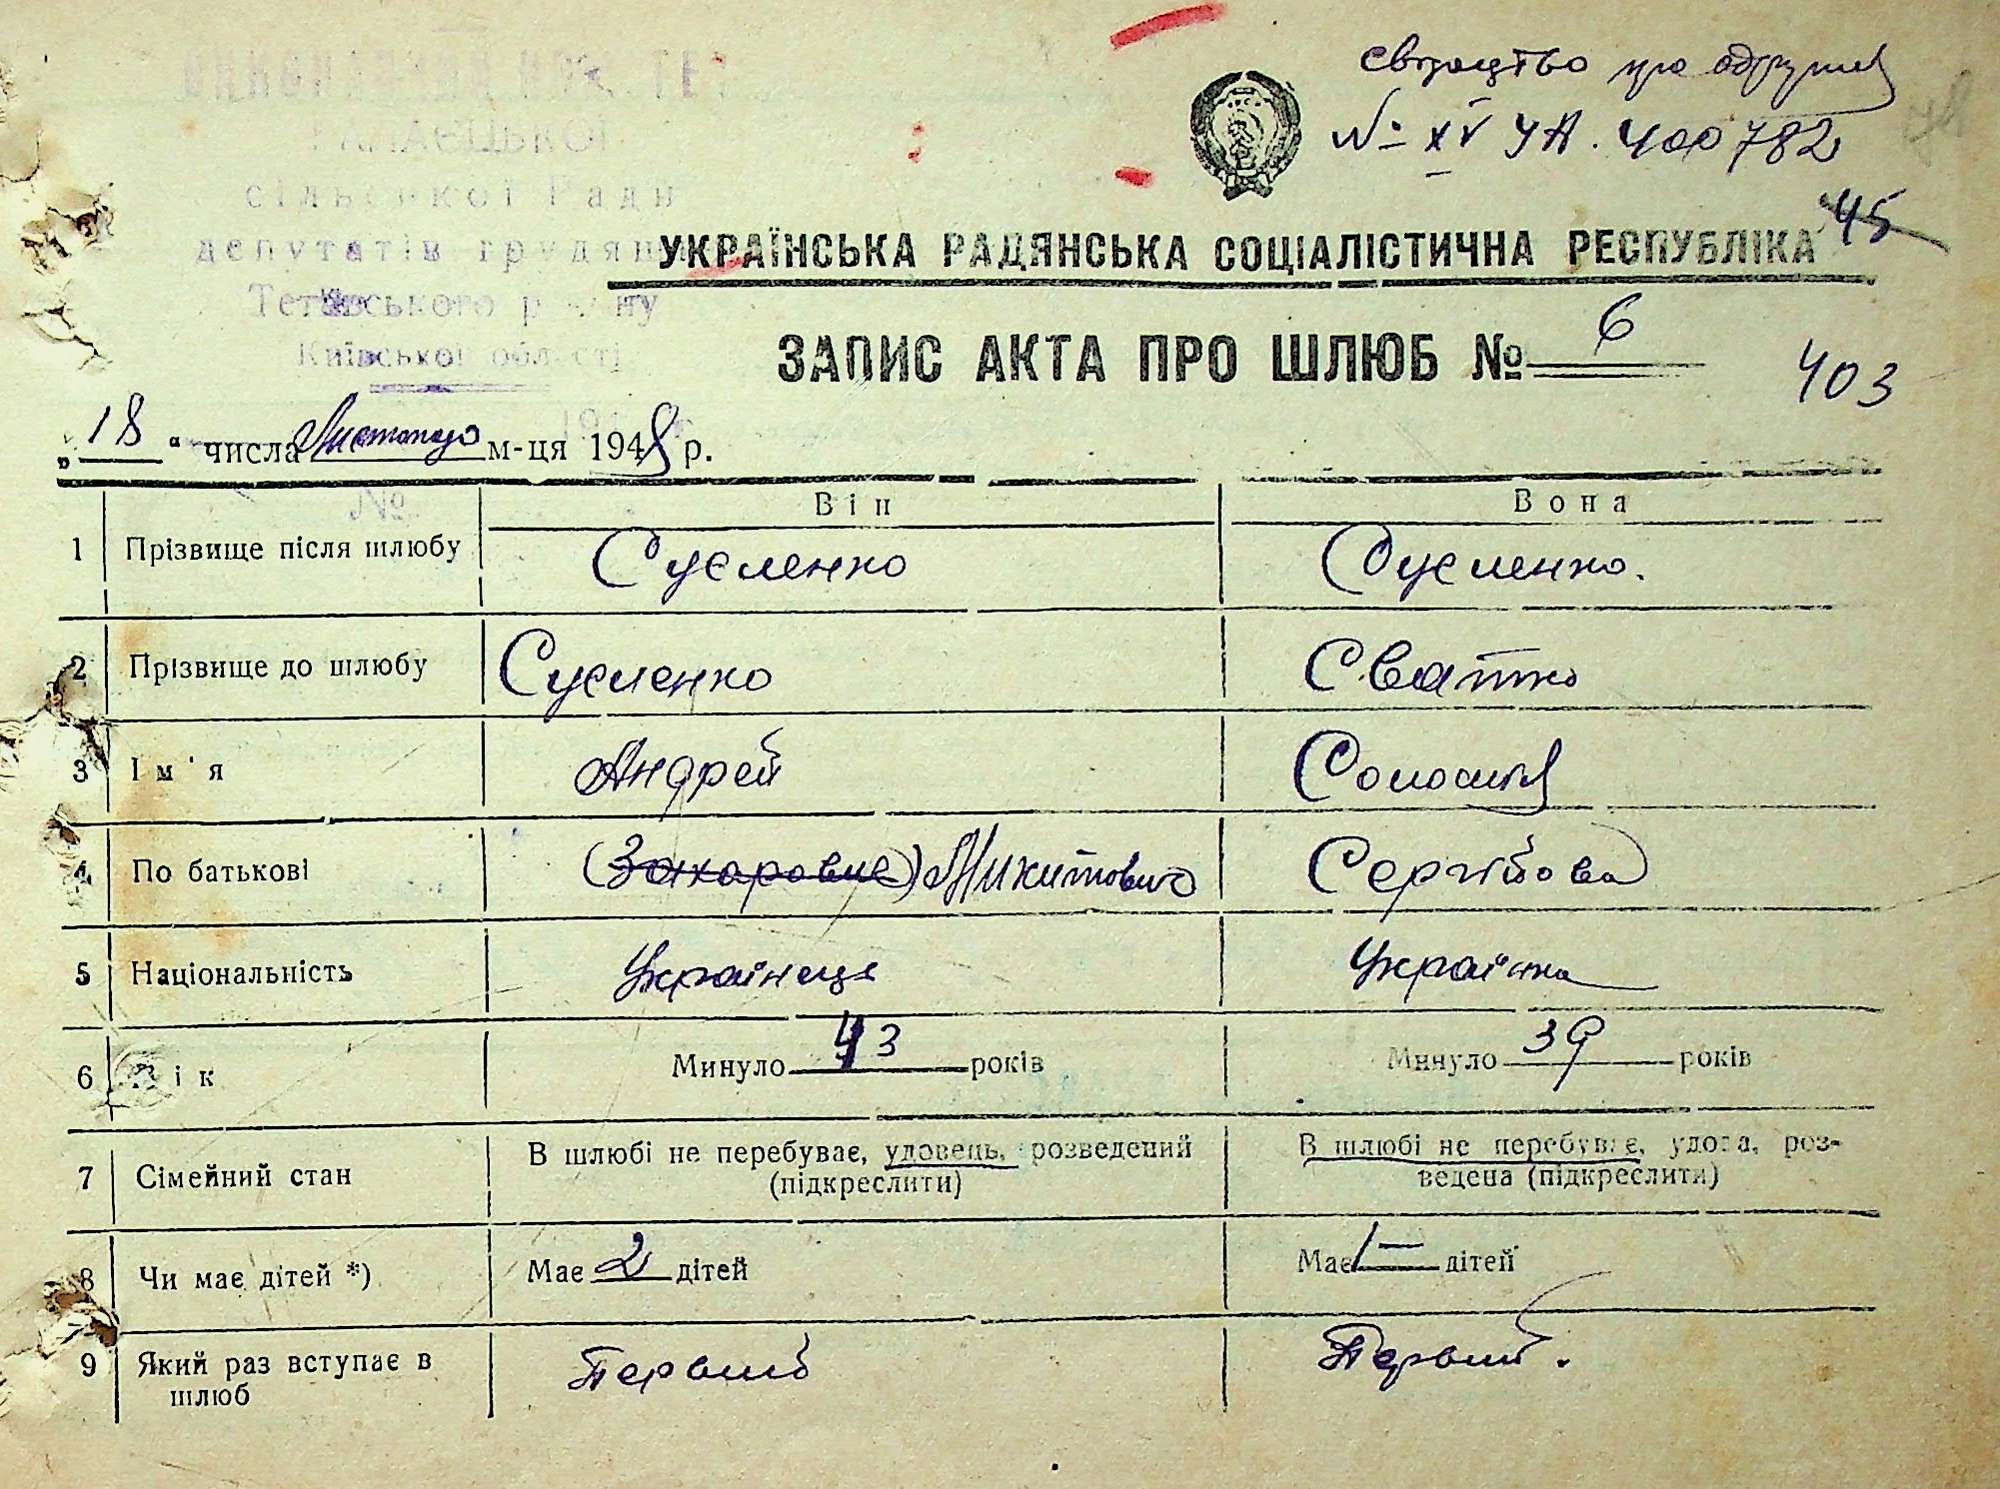 свідоцтво про одруж
№ XV УА. 400782
45
сільської Ради
депутатів трудящ
Тетіївського району
Київської області
УКРАЇНСЬКА РАДЯНСЬКА СОЦІАЛІСТИЧНА РЕСПУБЛІКА
ЗАПИС АКТА ПРО ШЛЮБ № 6
403
„18“ числа Листопада м-ця 1948 р.
№
Він Вона
1 Прізвище після шлюбу Сусленко Сусленко.
2 Прізвище до шлюбу Сусленко Сватко
3 Ім'я Андрей Соломія
4 По батькові (Захарович) Микитович Сергіївна
5 Національність Українець Українка
6 Вік Минуло 43 років Минуло 39 років
7 Сімейний стан В шлюбі не перебуває, удовець, розведений (підкреслити) В шлюбі не перебуває, удова, роз-
ведена (підкреслити)
8 Чи має дітей *) Має 2 дітей Має 1 дітей
9 Який раз вступає в Первий Первий.
шлюб